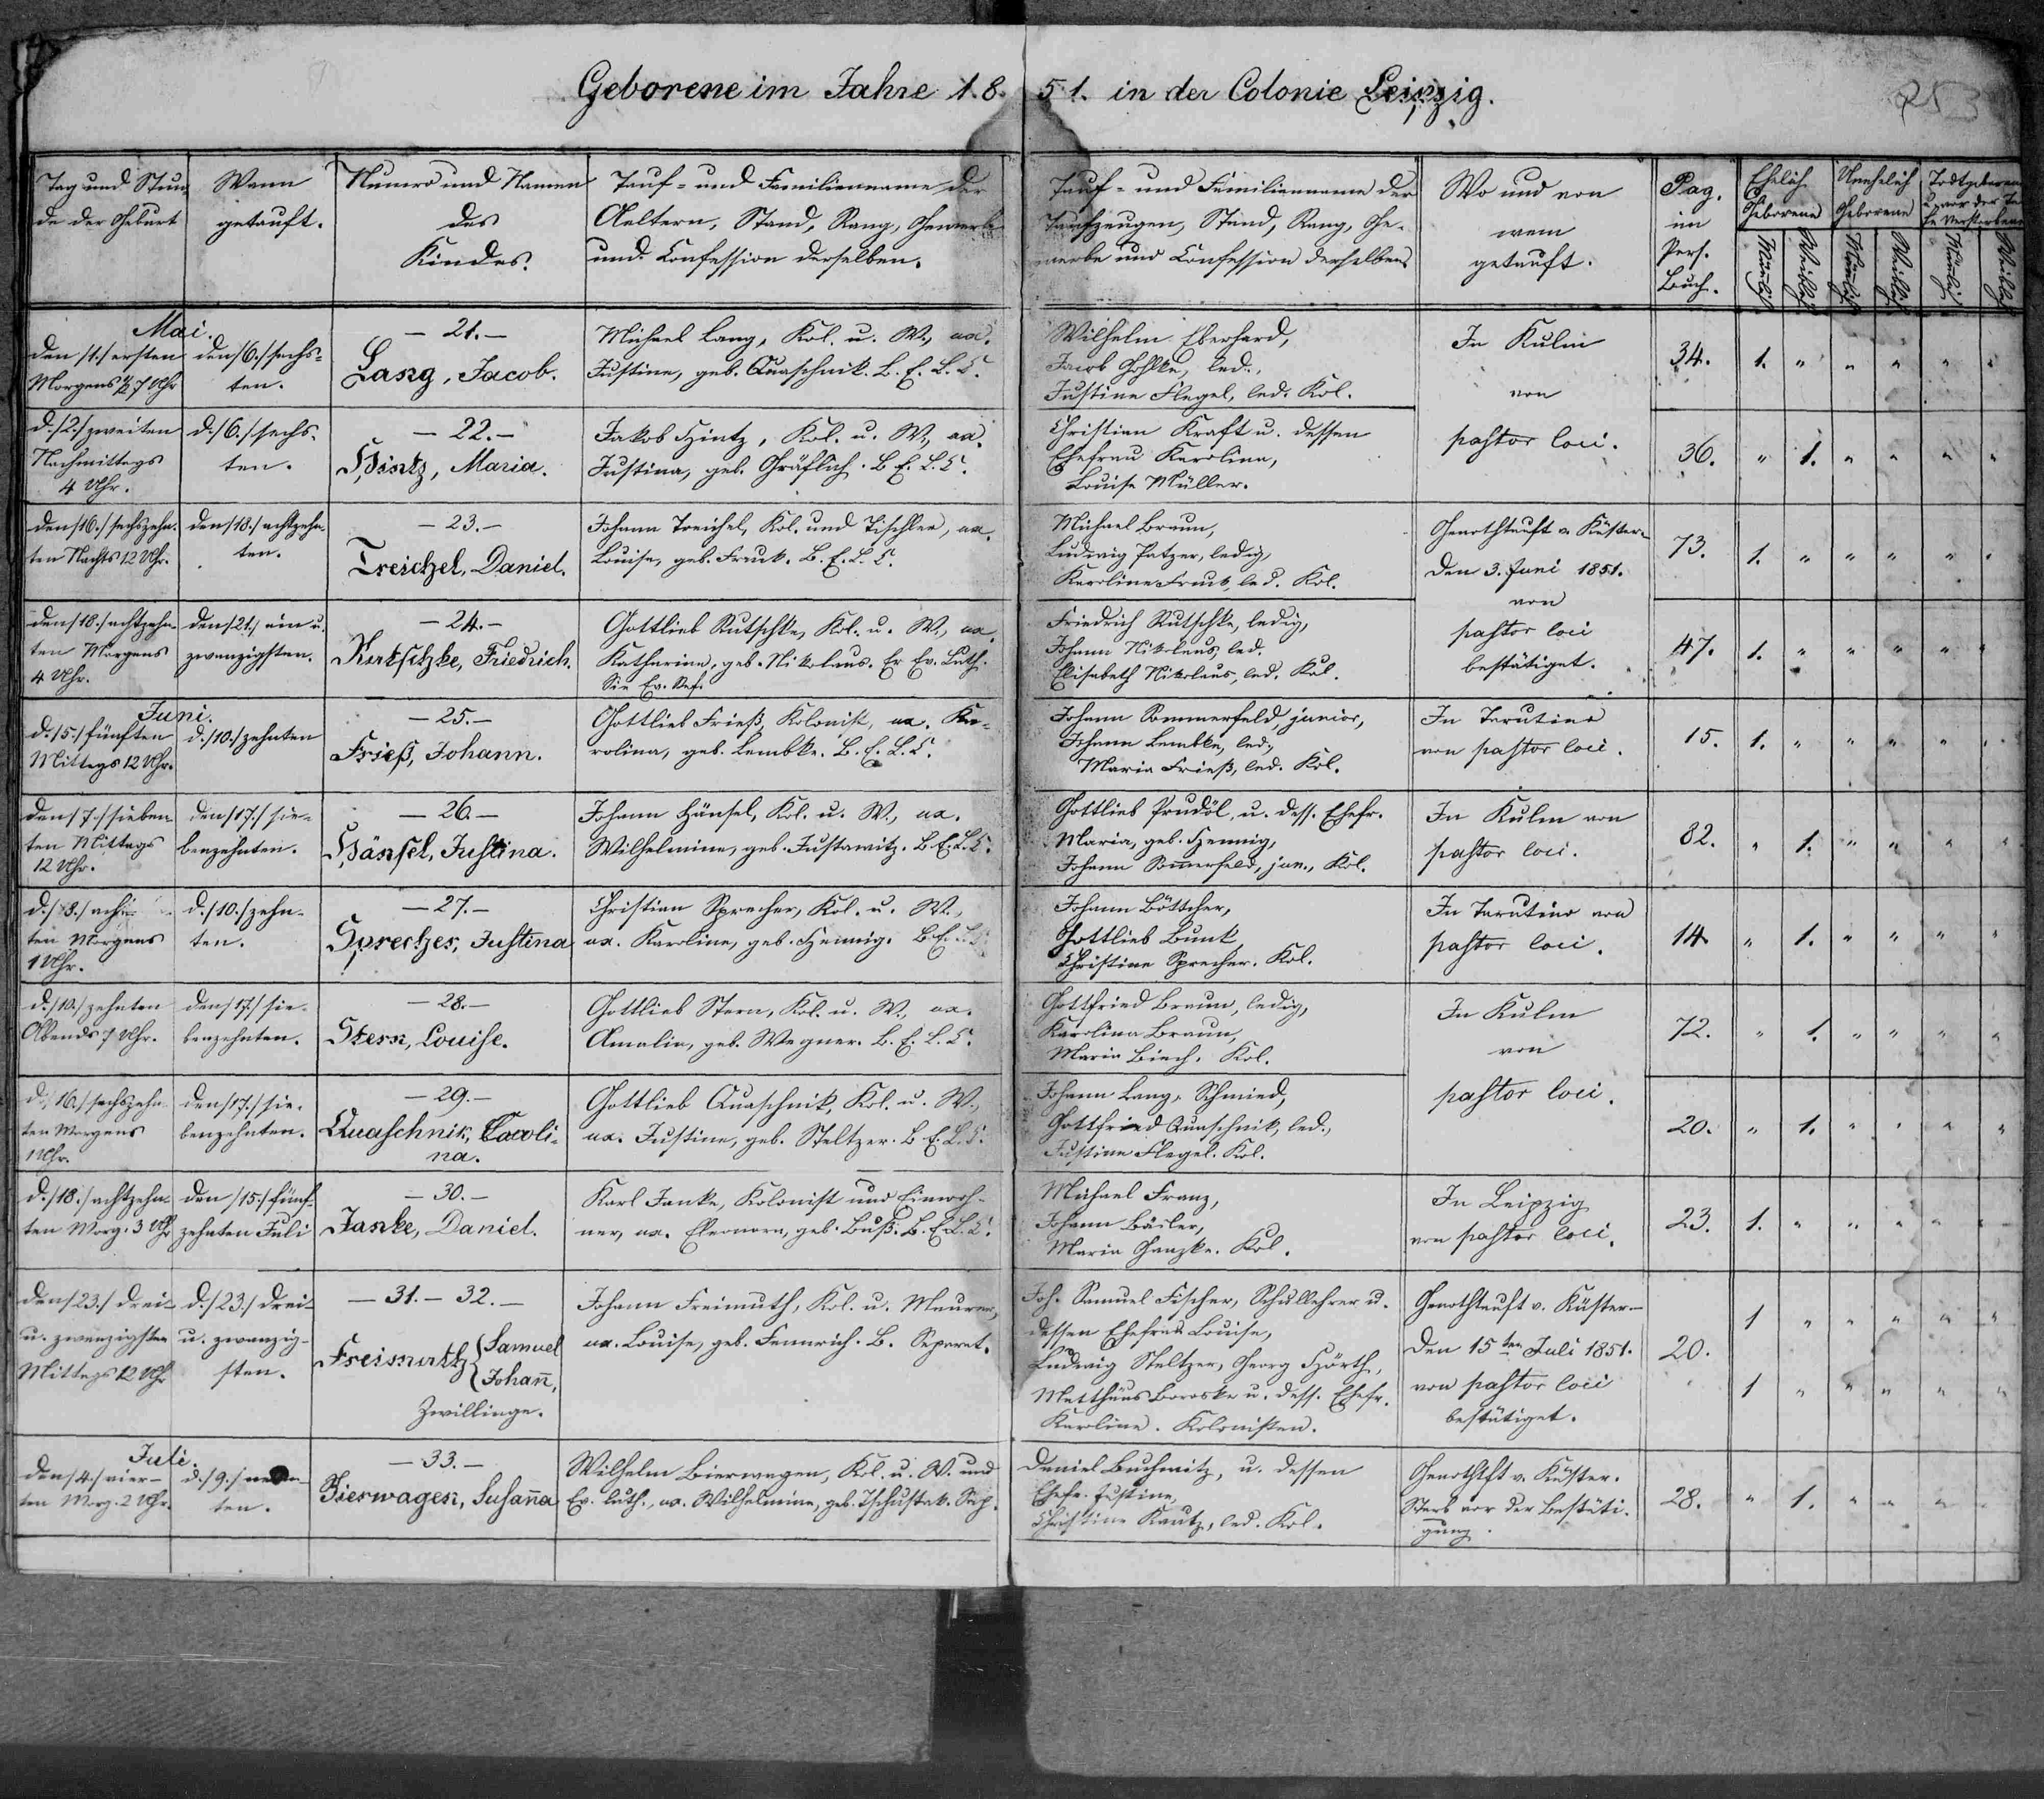 Geborene im Jahre 18 51. in der Colonie Leipzig.
253
Tag und Stun-
de der Geburt
Wann
getauft.
Numero und Namen
des
Kindes.
Tauf- und Familienname der
Aeltern, Stand, Rang, Gewerbe
und Confession derselben.
Tauf- und Familienname der
Taufzeugen, Stand, Rang, Ge-
werbe und Confession derselben
Wo und von
wem
getauft.
Pag.
im
Pers.
Buch.
Ehelich
Geborene
Unehelich
Geborene
Todtgeborene
u. vor der Tau-
fe Verstorbene
Männlich
Weiblich
Männlich
Weiblich
Männlich
Weiblich
Mai.
den /1./ ersten
Morgens ½ 7 Uhr
den /6./ sechs-
ten.
— 21. —
Lang, Jacob.
Michael Lang, Kol. u. W., ux.
Justine, geb. Quaschnik. B. E. L. C.
Wilhelm Eberhard,
Jacob Gohlke, led.,
Justine Flegel, led. Kol.
In Kulm
von
34. 1. " " " " "
d. /2./ zweiten
Nachmittags
4 Uhr.
d. /6./ sechs-
ten.
— 22. —
Hintz, Maria.
Jakob Hintz, Kol. u. W., ux.
Justina, geb. Gräflich. B. E. L. C.
Christian Kraft u. dessen
Ehefrau Karolina,
Louise Müller.
pastor loci.
36. " 1. " " " "
den /16./ sechszehn-
ten Nachts 12 Uhr.
den /18./ achtzehn-
ten.
— 23. —
Treichel, Daniel.
Johann Treichel, Kol. und Tischler, ux.
Louise, geb. Frank. B. E. L. C.
Michael Braun,
Ludwig Patzer, ledig,
Karoline Frank, led. Kol.
Genothtauft v. Küster
den 3. Juni 1851.
von
pastor loci
bestätiget.
73. 1. " " " " "
den /18./ achtzehn-
ten Morgens
4 Uhr.
den /21./ ein u.
zwanzigsten.
— 24. —
Rutschke, Friedrich.
Gottlieb Rutschke, Kol. u. W., ux.
Katharina, geb. Nikolaus. Er Ev. Luth.
Sie Ev. Ref.
Friedrich Rutschke, ledig,
Johann Nikolaus, led.
Elisabeth Nikolaus, led. Kol.
47. 1. " " " " "
Juni.
d. /5./ fünften
Mittags 12 Uhr.
d. /10./ zehnten
— 25. —
Frieß, Johann.
Gottlieb Frieß, Kolonist, ux. Ka-
rolina, geb. Lembke. B. E. L. C.
Johann Sommerfeld, junior,
Johann Lembke, led.,
Maria Frieß, led. Kol.
In Tarutino
von pastor loci.
15. 1. " " " " "
den /7./ sieben-
ten Mittags
12 Uhr.
den /17./ sie-
benzehnten.
— 26. —
Hänsel, Justina.
Johann Hänsel, Kol. u. W., ux.
Wilhelmine, geb. Justawitz. B. E. L. C.
Gottlieb Prudöl, u. dess. Ehefr.
Maria, geb. Hennig,
Johann Sommerfeld, jun., Kol.
In Kulm von
pastor loci.
82. " 1. " " " "
d. /8./ ach-
ten Morgens
1 Uhr.
d. /10./ zehn-
ten.
— 27. —
Sprecher, Justina
Christian Sprecher, Kol. u. W.,
ux. Karoline, geb. Hennig. B. E. L. C.
Johann Böttcher,
Gottlieb Bunk,
Christine Sprecher. Kol.
In Tarutino von
pastor loci.
14. " 1. " " " "
d. /10./ zehnten
Abends 7 Uhr.
den /17./ sie-
benzehnten.
— 28. —
Stern, Louise.
Gottlieb Stern, Kol. u. W., ux.
Amalia, geb. Wagner. B. E. L. C.
Gottfried Braun, ledig,
Karolina Braun,
Maria Biech. Kol.
In Kulm
von
pastor loci.
72. " 1. " " " "
d. /16./ sechszehn-
ten Morgens
1 Uhr.
den /17./ sie-
benzehnten.
— 29. —
Quaschnik, Caroli-
na.
Gottlieb Quaschnik, Kol. u. W.,
ux. Justine, geb. Steltzer. B. E. L. C.
Johann Lang, Schmied,
Gottfried Quaschnik, led.,
Justine Flegel. Kol.
20. " 1. " " " "
d. /18./ achtzehn-
ten Morg. 3 Uhr
den /15./ fünf-
zehnten Juli
— 30. —
Janke, Daniel.
Karl Janke, Kolonist und Einwoh-
ner, ux. Eleonora, geb. Buß. B. E. L. C.
Michael Franz,
Johann Bäiler,
Maria Ganzke. Kol.
In Leipzig
von pastor loci.
23. 1. " " " " "
den /23./ drei-
u. zwanzigsten
Mittags 12 Uhr
d. /23./ drei-
u. zwanzig-
sten.
— 31. — 32. —
Freimuth { Samuel
Johañ,
Zwillinge.
Johann Freimuth, Kol. u. Maurer,
ux. Louise, geb. Fennrich. B. Separat.
Joh. Samuel Fischer, Schullehrer u.
dessen Ehefrau Louise,
Ludwig Steltzer, Georg Hörth,
Matthäus Boroske u. dess. Ehefr.
Karoline. Kolonisten.
Genothtauft v. Küster
den 15ten Juli 1851.
von pastor loci
bestätiget.
20.
1 " " " " "
1 " " " " "
Juli.
den /4./ vier-
ten Morg. 2 Uhr.
d. /9./ neun-
ten.
— 33. —
Bierwagen, Susaña
Wilhelm Bierwagen, Kol. u. W. und
Ev. Luth., ux. Wilhelmine, geb. Tschustak. Sep.
Daniel Buchwitz, u. dessen
Ehefr. Justine,
Christine Kautz, led. Kol.
Genothtft v. Küster.
Starb vor der Bestäti-
gung.
28. " 1. " " " "